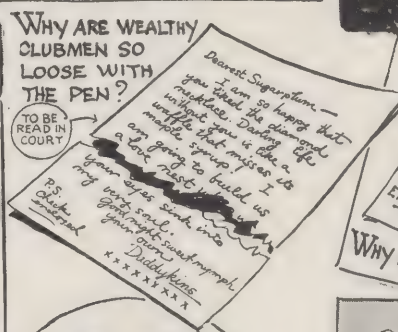 WHY ARE WEALTHY
CLUBMEN SO
LOOSE WITH
THE PEN?
TO BE
READ IN
COURT
Dearest Sugarplum—
I am so happy that
you liked the diamond
necklace. Darling life
without you is like a
waffle that misses its
maple syrup! I
am going to build us
a love nest
your eyes sink into
my very soul.
Good night sweet nymph
your own
Daddykins
x x x x x x x x x
P.S.
Check
enclosed
WHY